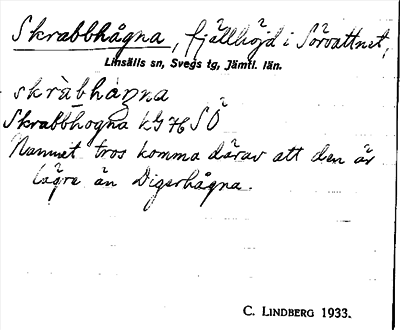 Skrabbhågna, fjällhöjd i Sörvattnet,
Linsälls sn, Svegs tg, Jämtl. län.
skràbhàŋna
Skrabbhogna kG 78 SÖ
Namnet tros komma därav att den är
lägre än Digerhågna.
C. LINDBERG 1933.